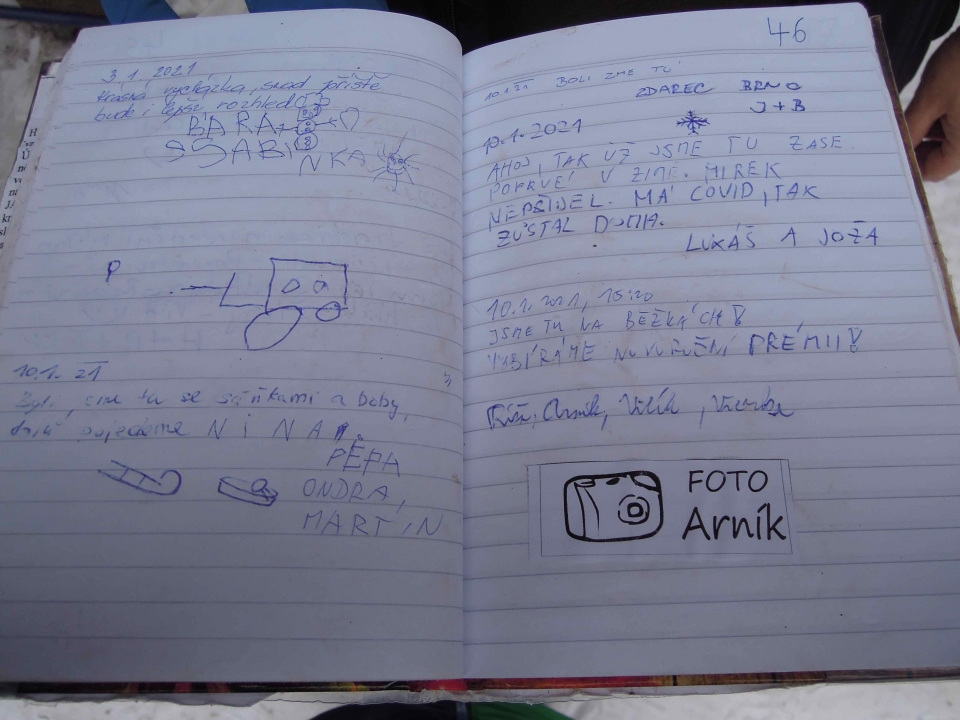 3.1.2021
Krásná vycházka, snad příště
bude i lepší rozhled
BÁRA
SABI
NKA
P
10.1. 21
sme tu se sáňkama a boby,
NINA
PEPA
ONDRA,
MARTIN
46
10.1.21 BOLI ZME TU
ZDAREC BRNO
J+B
10.1.2021
AHOJ, TAK UŽ JSME TU ZASE.
POPRVÉ V ZIMĚ. MIREK
NEPŘIJEL. MÁ COVID, TAK
ZŮSTAL DOMA.
LUKÁŠ A JOŽA
10.1.2021, 15:20
JSME TU NA BĚŽKÁCH!
VYBÍRÁME PRÉMII!
Arník, Vilík,
FOTO
Arník